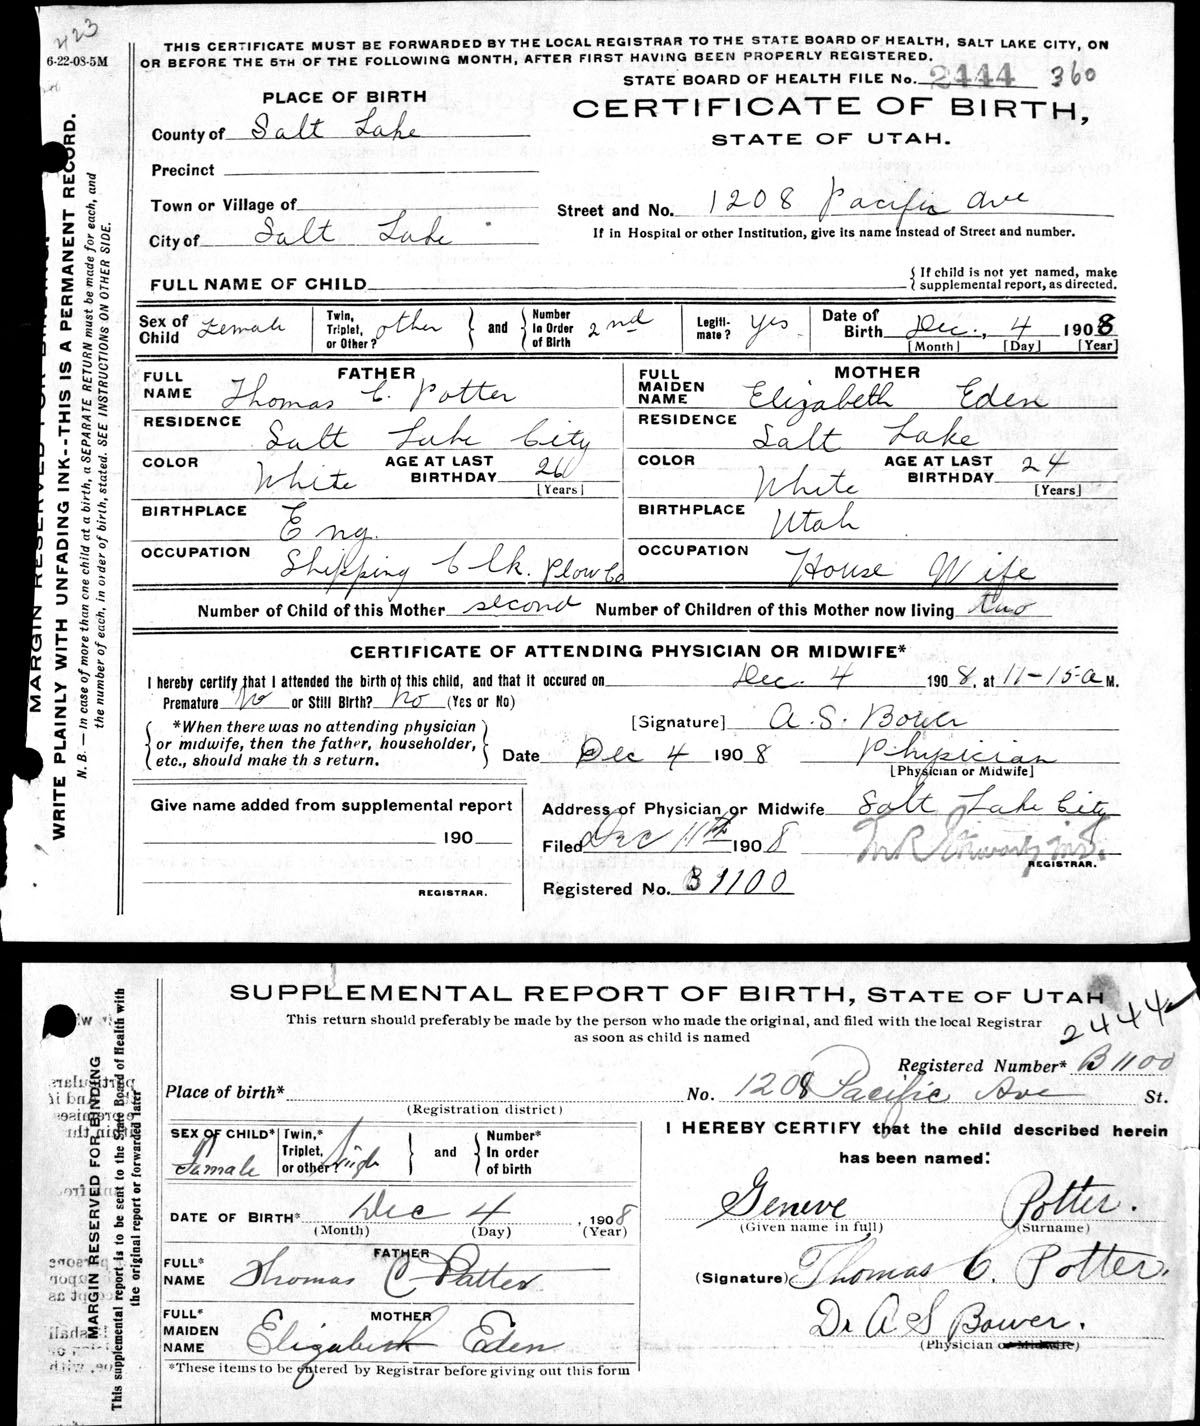 423
6-22-08-5M
THIS CERTIFICATE MUST BE FORWARDED BY THE LOCAL REGISTRAR TO THE STATE BOARD OF HEALTH, SALT LAKE CITY, ON
OR BEFORE THE 5TH OF THE FOLLOWING MONTH, AFTER FIRST HAVING BEEN PROPERLY REGISTERED.
STATE BOARD OF HEALTH FILE No. 2444 360
PLACE OF BIRTH
CERTIFICATE OF BIRTH,
STATE OF UTAH.
County of Salt Lake
Precinct
Town or Village of
Street and No. 1208 Pacific Ave
City of Salt Lake
If in Hospital or other Institution, give its name instead of Street and number.
FULL NAME OF CHILD
{ If child is not yet named, make
supplemental report, as directed.
Sex of Child Female
Twin, Triplet, or Other? other } and { Number In Order of Birth 2nd
Legiti-mate? Yes
Date of Birth Dec., 4 1908
[Month] [Day] [Year]
FATHER
FULL NAME Thomas C. Potter
RESIDENCE Salt Lake City
COLOR White AGE AT LAST BIRTHDAY 26
[Years]
BIRTHPLACE Eng.
OCCUPATION Shipping Clk. Plow Co
MOTHER
FULL MAIDEN NAME Elizabeth Eden
RESIDENCE Salt Lake
COLOR White AGE AT LAST BIRTHDAY 24
[Years]
BIRTHPLACE Utah
OCCUPATION House Wife
Number of Child of this Mother second Number of Children of this Mother now living two
CERTIFICATE OF ATTENDING PHYSICIAN OR MIDWIFE*
I hereby certify that I attended the birth of this child, and that it occured on Dec. 4 1908, at 11-15-a M.
Premature No or Still Birth? No (Yes or No)
*When there was no attending physician
or midwife, then the father, householder,
etc., should make th s return.
[Signature] A. S. Bower
Date Dec 4 1908 Physician
[Physician or Midwife]
Give name added from supplemental report
190
REGISTRAR.
Address of Physician or Midwife Salt Lake City
Filed Dec 11th 1908
REGISTRAR.
Registered No. B 1100
MARGIN RESERVED FOR BINDING.
WRITE PLAINLY WITH UNFADING INK--THIS IS A PERMANENT RECORD.
N. B. — In case of more than one child at a birth, a SEPARATE RETURN must be made for each, and
the number of each, in order of birth, stated. SEE INSTRUCTIONS ON OTHER SIDE.
SUPPLEMENTAL REPORT OF BIRTH, STATE OF UTAH
2444
This return should preferably be made by the person who made the original, and filed with the local Registrar
as soon as child is named
Registered Number* B 1100
Place of birth*
(Registration district)
No. 1208 Pacific Ave St.
SEX OF CHILD* Female
Twin,* Triplet, or other } and { Number* In order of birth
DATE OF BIRTH* Dec 4, 1908
(Month) (Day) (Year)
FATHER
FULL* NAME Thomas C Potter
MOTHER
FULL* MAIDEN NAME Elizabeth Eden
*These items to be entered by Registrar before giving out this form
I HEREBY CERTIFY that the child described herein
has been named:
Geneve Potter.
(Given name in full) (Surname)
(Signature) Thomas C. Potter.
Dr A S Bower.
(Physician or Midwife)
MARGIN RESERVED FOR BINDING
This supplemental report is to be sent to the State Board of Health with
the original report or forwarded later